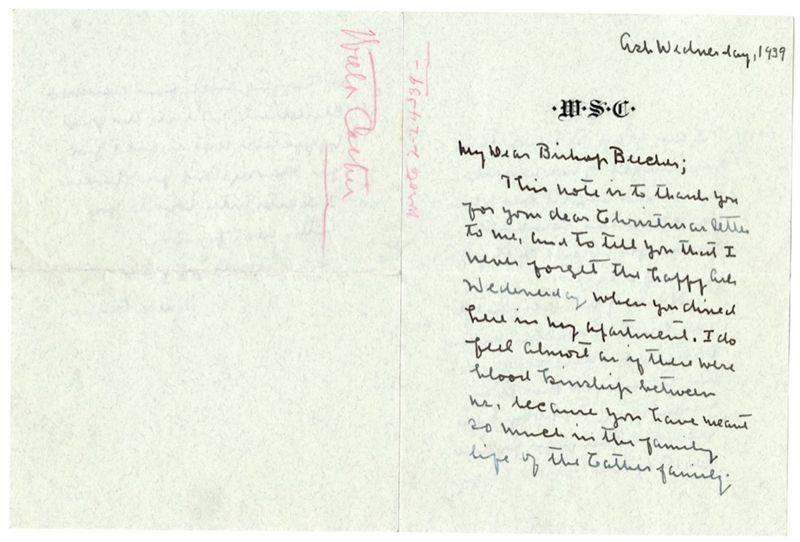 Ash Wednesday, 1939
·W·S·C·
My Dear Bishop Beecher;
This note is to thank you
for your dear Christmas letter
to me, and to tell you that I
never forget the happy Ash
Wednesday when you dined
here in my apartment. I do
feel almost as if there were
blood kinship between
us, because you have meant
so much in the family
life of the Cather family.
Willa Cather